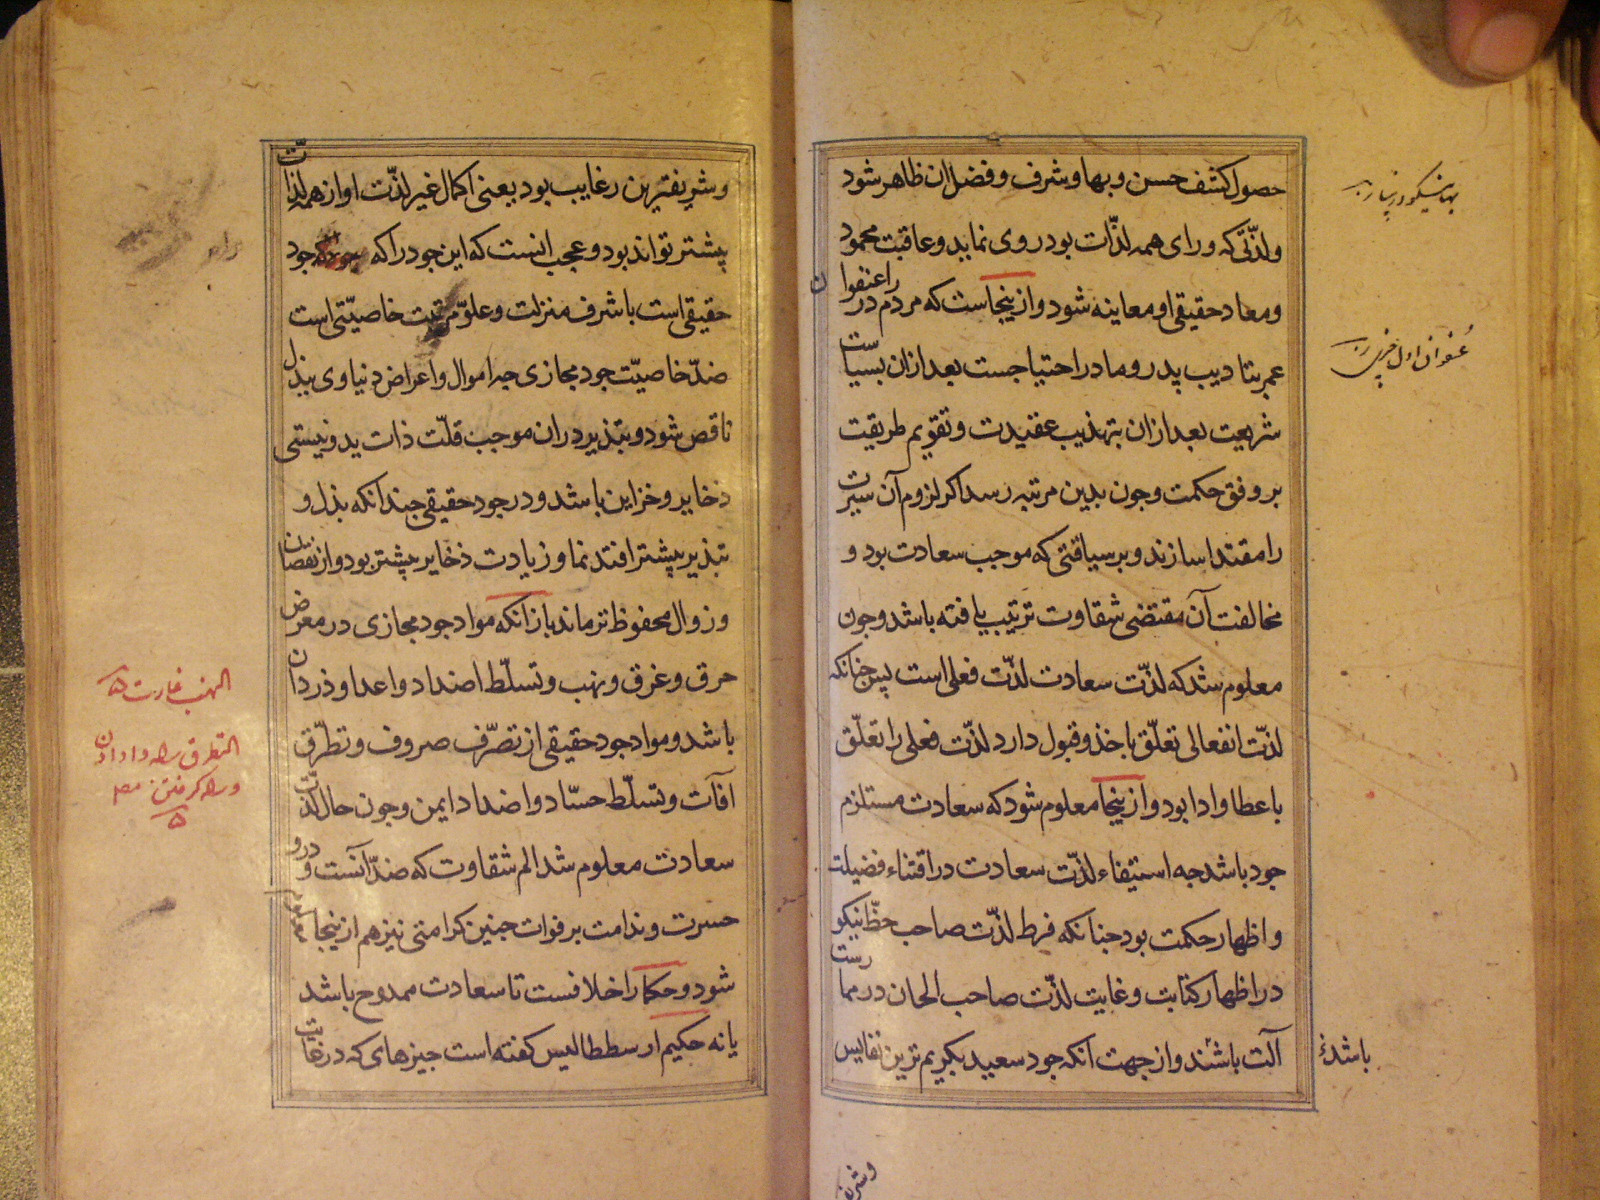 حصول کشف حسن و بها و شرف و فضل ان ظاهر شود
و لذّتی که ورای همه لذّات بود روی نماید و عاقبت محمود
و معاد حقیقی او معاینه شود و از ینجاست که مردم در راعنفوان
عمر بتادیب پدر و مادر احتیاجست بعد ازان بسیاست
شریعت بعد ازان بتهذیب عقیدت و تقویم طریقت
بر وفق حکمت و جون بدین مرتبه رسد اکر لزوم آن سیرت
را مقتدا سازند و بر سیاقتی که موجب سعادت بود و
مخالفت آن مقتضی شقاوت ترتیب یافته باشد و جون
معلوم شد که لذّت سعادت لذّت فعلی است پس جنانکه
لذّت انفعالی تعلّق باخذ و قبول دارد لذّت فعلی را تعلّق
با عطا و ادا بود و از ینجا معلوم شود که سعادت مستلزم
جود باشد جه استیفاء لذّت سعادت در اقتناء فضیلت
و اظهار حکمت بود جنانکه فرط لذّت صاحب حظّ نیکو
در اظهار کتابت و غایت لذّت صاحب الحان در ممارست
آلت باشند و از جهت انکه جود سعید بکریم ترین نفایس
باشد
عنفوان اول
و شریف‌ترین رغایب بود یعنی اکمال غیر لذّت او از همه لذّات
پیشتر تواند بود و عجب انست که این جود را که جود
حقیقی است با شرف منزلت و علوّ مرتبت خاصیّتی است
ضدّ خاصیّت جود مجازی جه اموال و اعراض دنیاوی ببذل
ناقص شود و تبذیر دران موجب قلّت ذات ید و نیستی
ذخایر و خزاین باشد و در جود حقیقی جندانکه بذل و
تبذیر بیشتر افتد نما و زیادت ذخایر بیشتر بود و از نقصان
و زوال محفوظ‌تر ماند باز انکه مواد جود مجازی در معرض
حرق و غرق و نهب و تسلّط اضداد و اعدا و دزدان
باشد و مواد جود حقیقی از تصرّف صروف و تطرّق
آفات و تسلّط حسّاد و اضداد ایمن و جون حال لذّت
سعادت معلوم شد الم شقاوت که ضدّ آنست و درو
حسرت و ندامت بر فوات جنین کرامتی نیز هم از ینجا معلوم
شود و حکما را خلافست تا سعادت ممدوح باشد
یا نه حکیم ارسططالیس کفته است جیزهای که در غایت
النهب غارت
التطرق راه دادن
و راه کرفتن